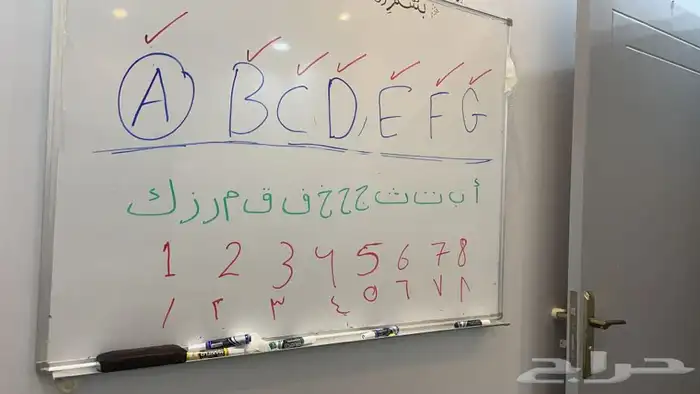 A B C D, E F G
أ ب ت ث ج ح خ ف ق م ر ز ك
1 2 3 4 5 6 7 8
١ ٢ ٣ ٤ ٥ ٦ ٧ ٨
حراج